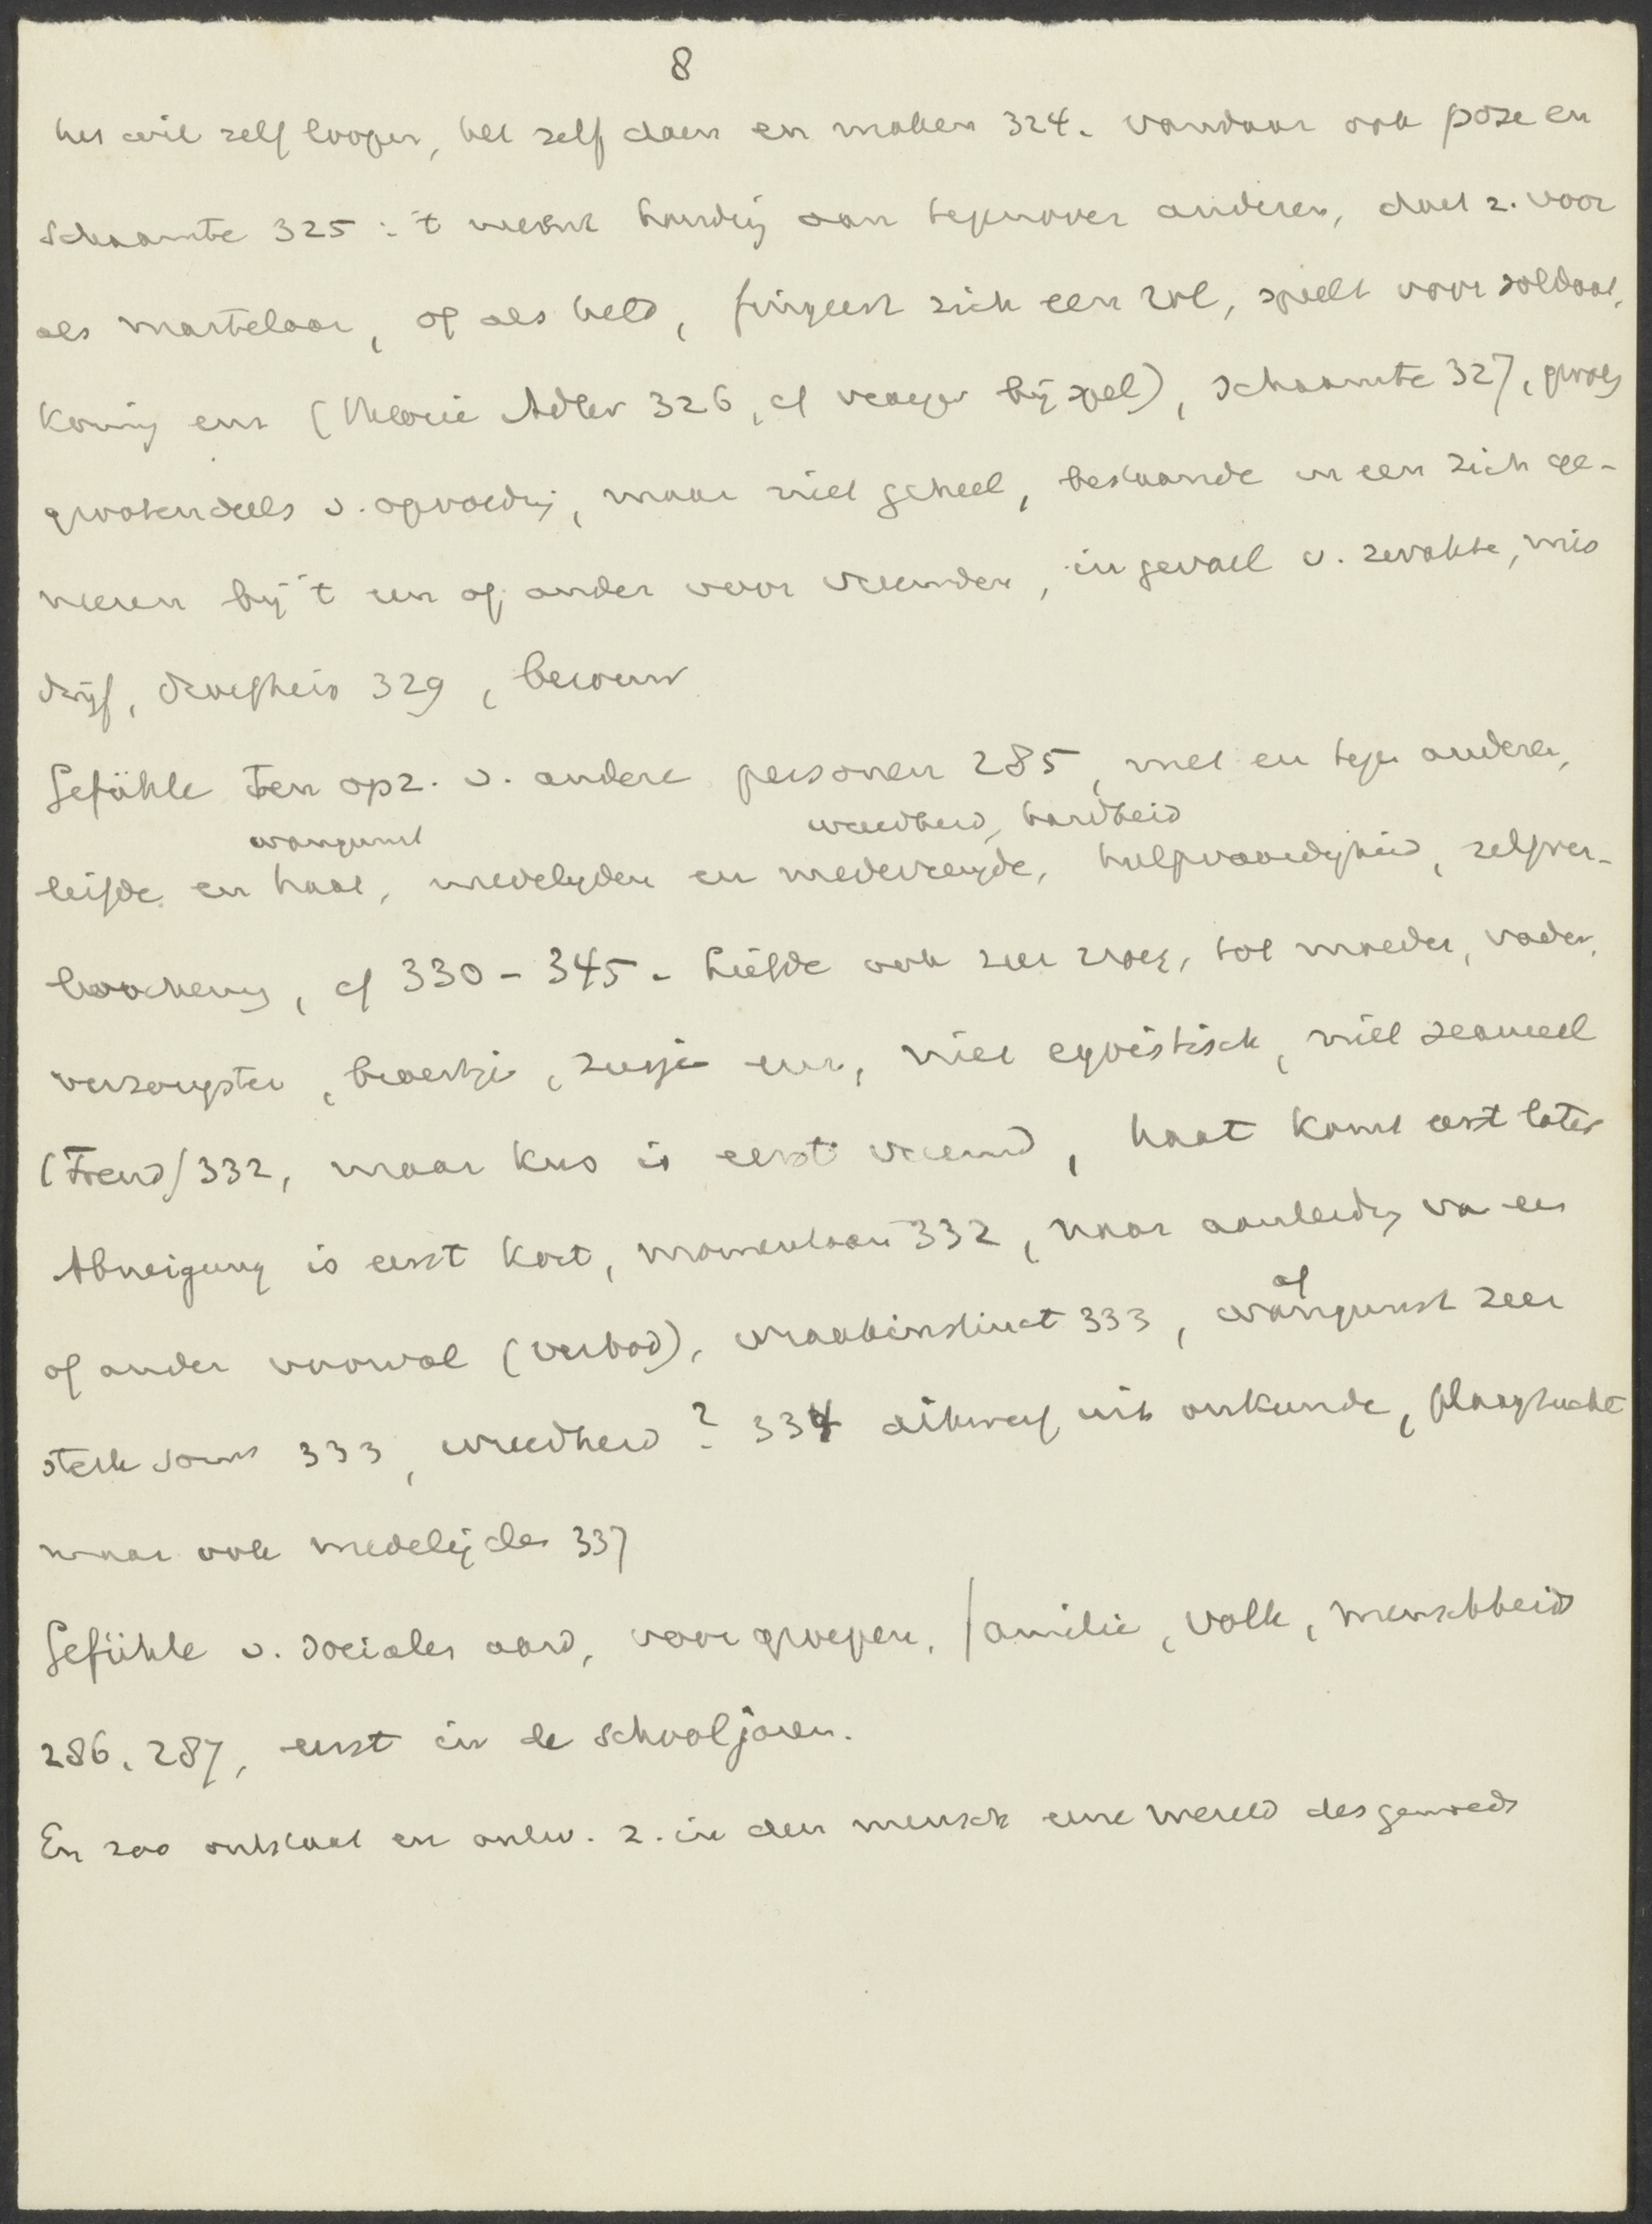 8
het wil zelf loopen, het zelf doen en maken 324. vandaar ook pose en
schaamte 325 : 't neemt houding aan tegenover anderen, doet z. voor
als martelaar, of als held, fingeert zich een rol, speelt voor soldaat,
koning enz (theorie Adler 326, cf vroeger bij spel), schaamte 327, gevolg
grootendeels v. opvoeding, maar niet geheel, bestaande in een zich ge-
neeren bij 't een of ander voor vreemden, in geval v. zwakte, mis
drijf, droefheid 329, berouw
Gefühle ten opz. v. andere personen 285, met en tegen anderen,
wangunst wreedheid, hardheid
liefde en haat, medelijden en medevreugde, hulpvaardigheid, zelfver-
loochening, cf 330-345. Liefde ook zeer vroeg, tot moeder, vader,
verzorgster, broertje, zusje enz, niet egoistisch, niet sexueel
(Freud) 332, maar kus is eerst vreemd, haat komt eerst later
Abneigung is eerst kort, momentaan 332, naar aanleiding van een
of ander voorval (verbod), wraakinstinct 333, wangunst zeer
af
sterk soms 333, wreedheid ? 334 dikwerf uit onkunde, plaagzucht
maar ook medelijden 337
Gefühle v. socialen aard, voor groepen, familie, volk, menschheid
286, 287, eerst in de schooljaren.
En zoo ontstaat en ontw. z. in den mensch eene wereld des gemoeds